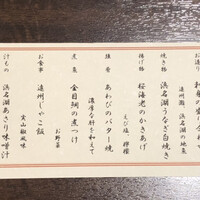 お造り
遠州灘、浜名湖の地魚
焼き格
浜名湖うなぎ白焼き
揚げ格
桜海老のかきあげ
えび塩、檸檬
強肴
あわびのバター焼
濃厚な肝を和えて
煮魚
金目鯛の煮つけ
お野菜
お食事
遠州じゃこ飯
実山椒風味
汁もの
浜名湖あさり味噌汁